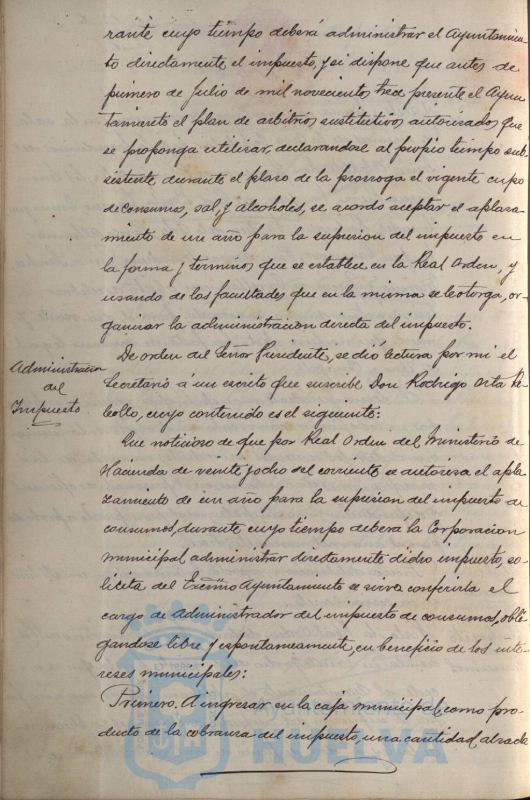 rante cuyo tiempo deberá administrar el Ayuntamien-
to directamente el impuesto, y si dispone que antes de
primero de Julio de mil novecientos trece presente el Ayun-
tamiento el plan de arbitrios sustitutivos autorizados que
se proponga utilizar, declarandose al propio tiempo sub-
sistente, durante el plazo de la prorroga el vigente cupo
de consumos, sal, y alcoholes, se acordó aceptar el aplaza-
miento de un año para la supresion del impuesto en
la forma y terminos que se establece en la Real Orden, y
usando de las facultades que en la misma se le otorga, or-
ganizar la administracion directa del impuesto.
Administracion
del
Impuesto
De orden del Señor Presidente, se dió lectura por mi el
Secretario á un escrito que suscribe Don Rodrigo Orta Re-
bollo, cuyo contenido es el siguiente:
Que noticioso de que por Real Orden del Ministerio de
Hacienda de veinte y ocho del corriente se autoriza el apla-
zamiento de un año para la supresion del impuesto de
consumos, durante cuyo tiempo deberá la Corporacion
municipal administrar directamente dicho impuesto, so-
licita del Excmo Ayuntamiento se sirva conferirle el
cargo de Administrador del impuesto de consumos, obli-
gandose libre y espontaneamente, en beneficio de los inte-
reses municipales:
Primero. A ingresar en la caja municipal, como pro-
ducto de la cobranza del impuesto, una cantidad alzada
HUELVA